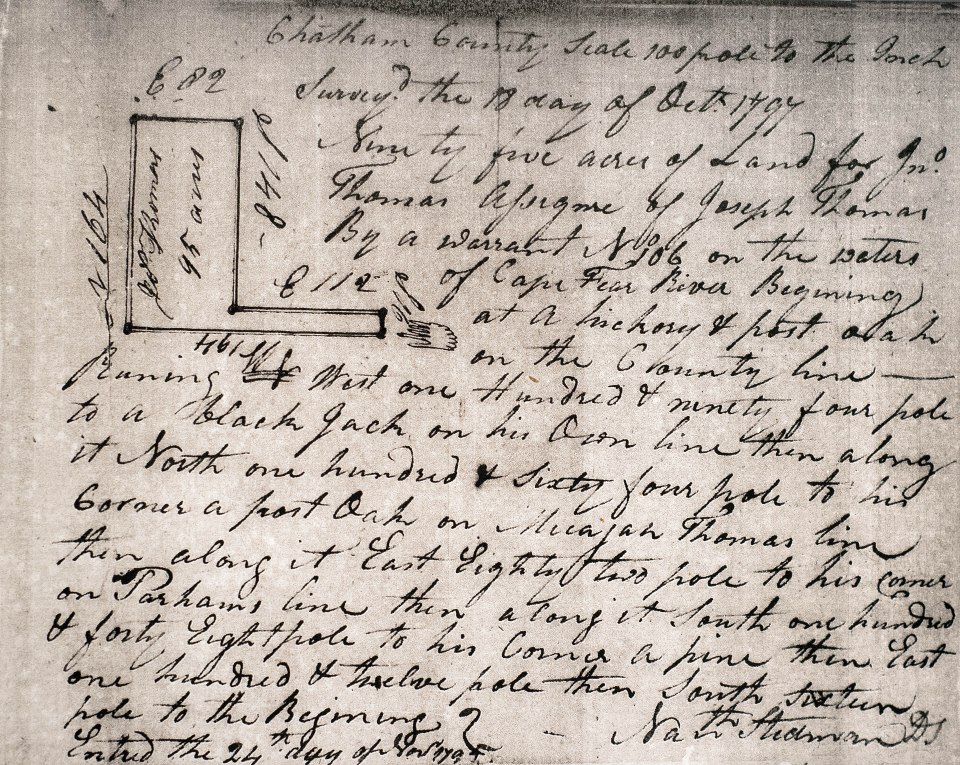 Chatham County Scale 100 pole to the Inch
Survey.d the 18 day of Oct.r 1797
E 82
Ninety five acres of Land for Jn.o
Thomas Assigne of Joseph Thomas
By a warrant No 106 on the waters
of Cape Fear River Begining
at a hickory & post oak
on the County line —
N 164
95 acres
S 148
E 112
S 16
W 194
Runing West one Hundred & ninety four pole
to a Black Jack on his Own line then along
it North one hundred & sixty four pole to his
Corner a post Oak on Micajah Thomas line
then along it East Eighty two pole to his corner
on Parhams line then along it South one hundred
& forty Eight pole to his Corner a pine then East
one hundred & twelve pole then South sixteen
pole to the Begining
Nath Stedman DS
Entred the 24th day of